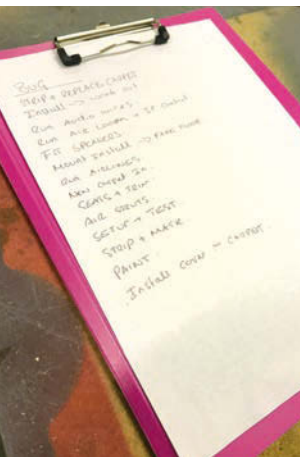 BUG
STRIP + REPLACE CARPET
Install -> work out
Run Audio wires
Run AIR LOOM + IP Control
FIT SPEAKERS
Mount Install -> FAKE FLOOR
Run AIRLINES
New Carpet In
SEATS + TRIM
AIR STRUTS
SETUP + TEST
STRIP + MASK
PAINT
Install COVER CARPET